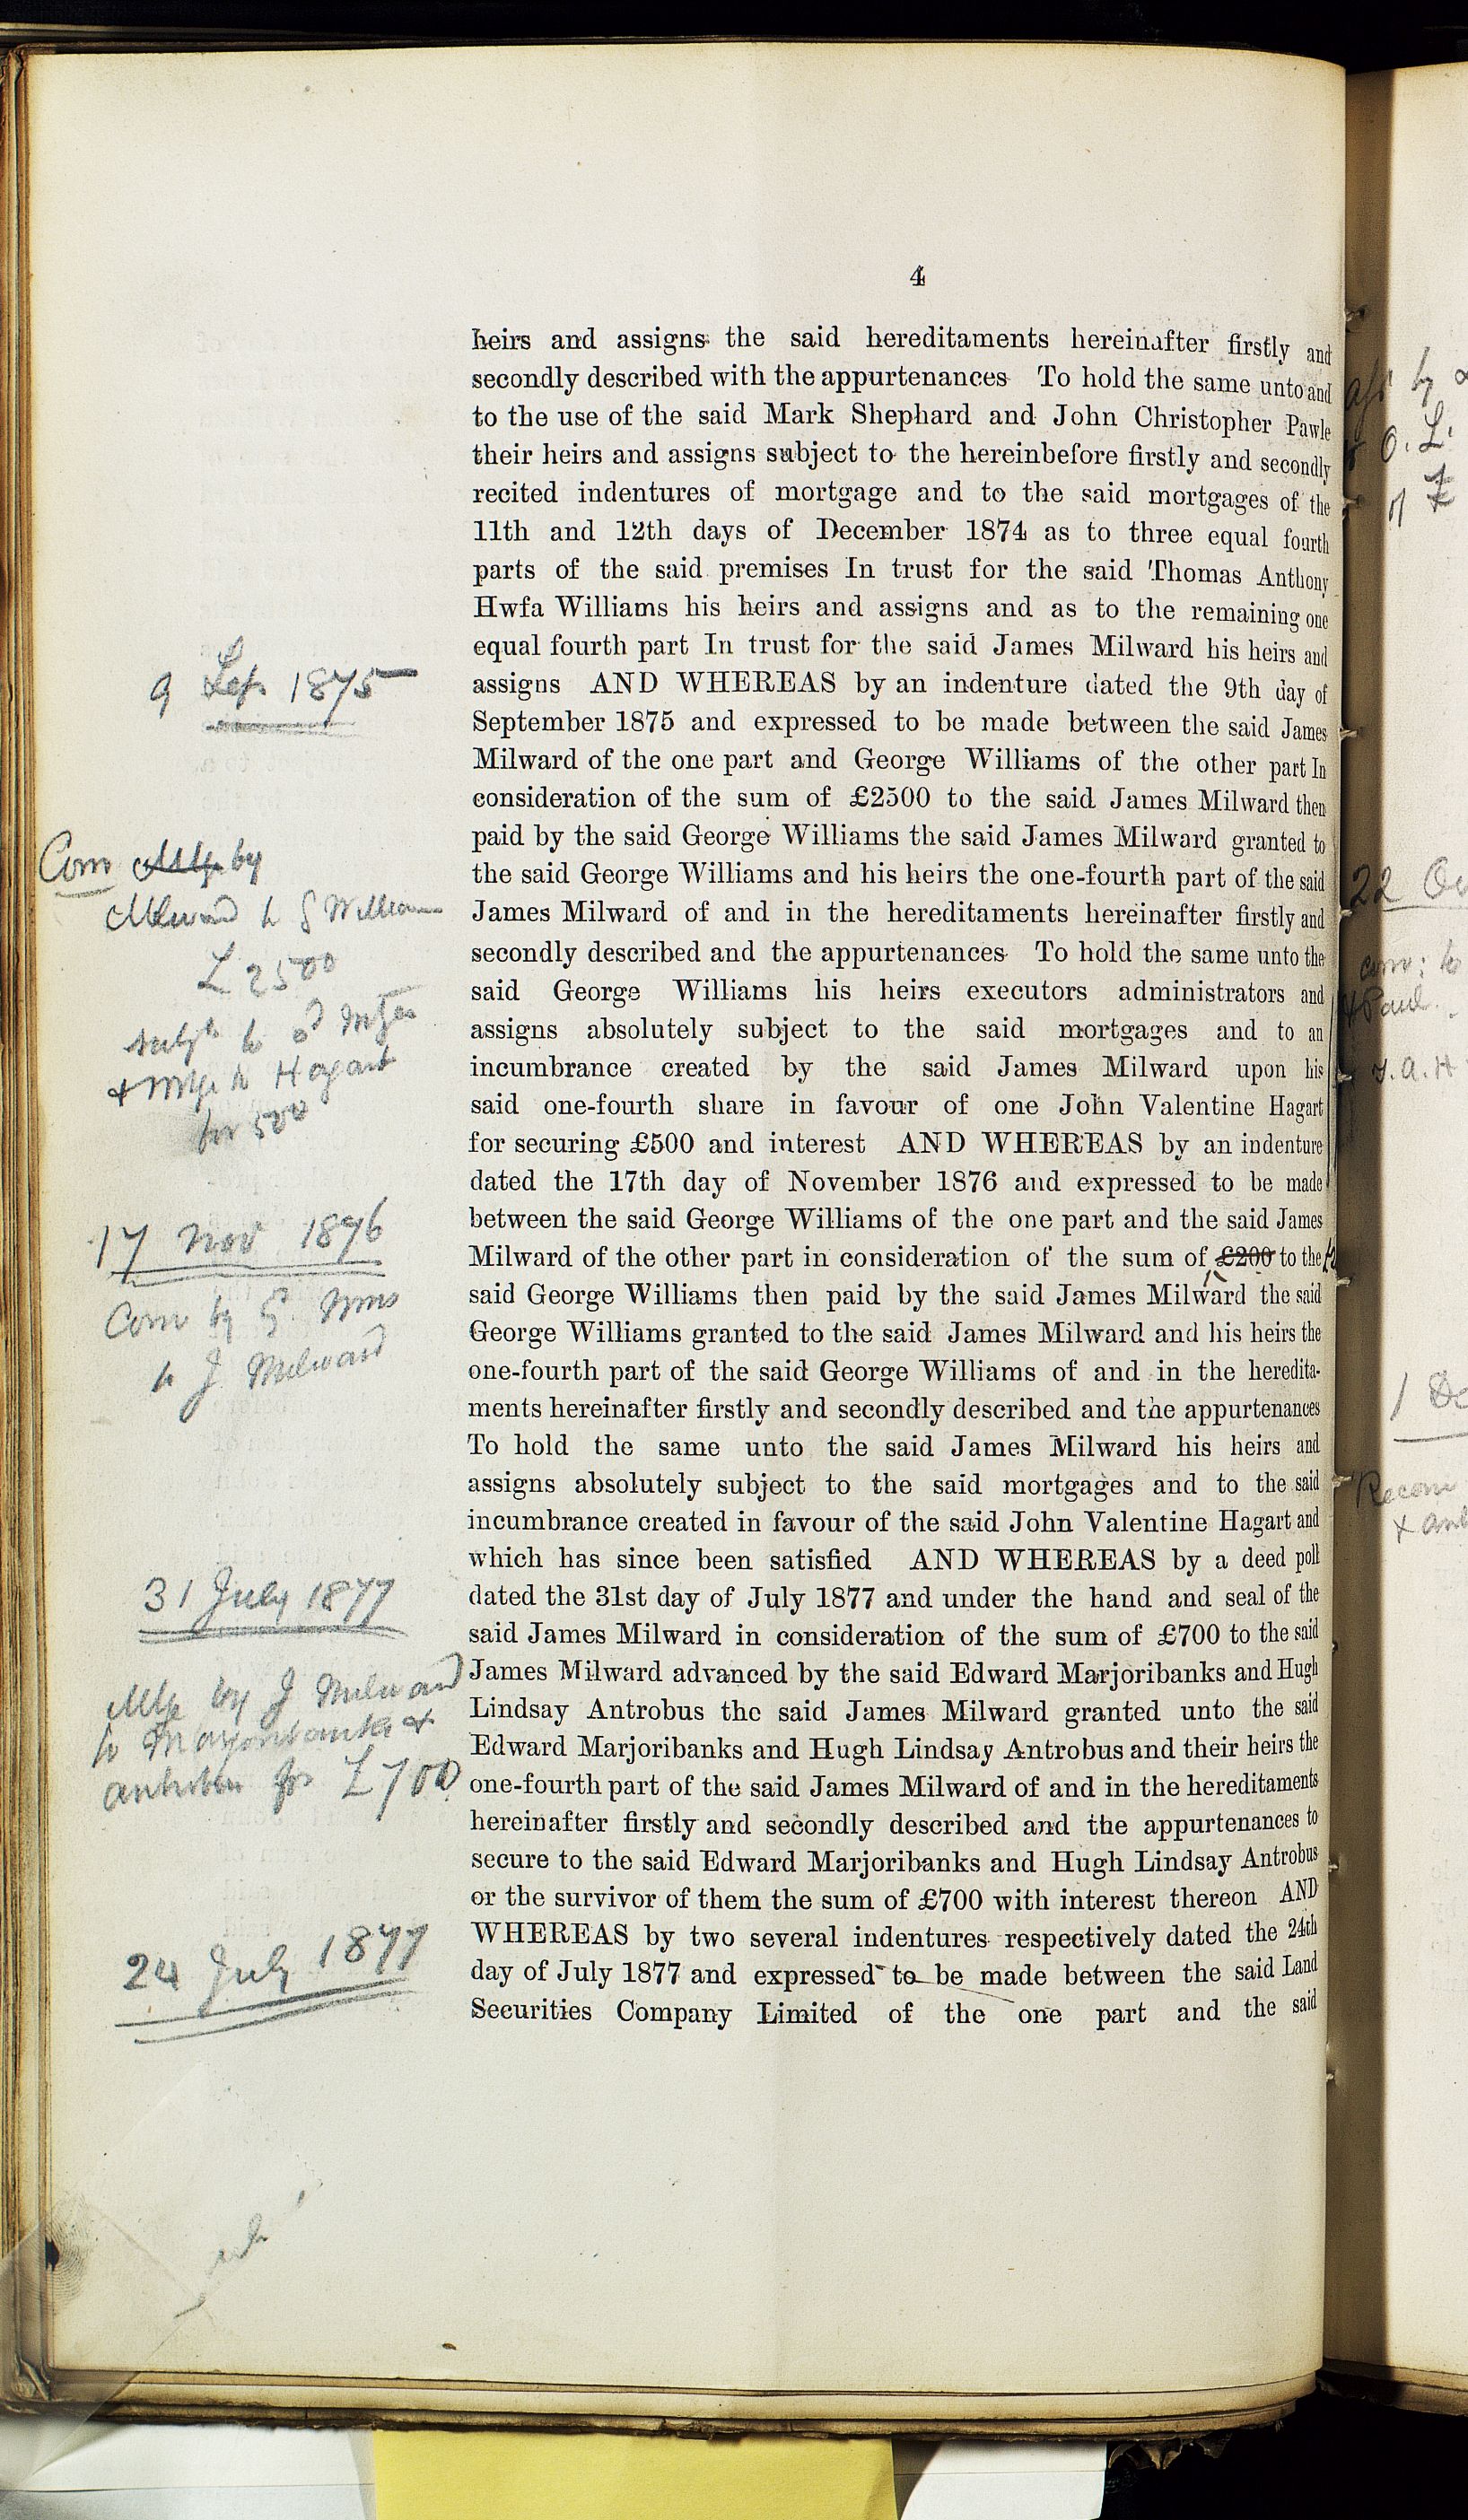 4
heirs and assigns the said hereditaments hereinafter firstly and
secondly described with the appurtenances To hold the same unto and
to the use of the said Mark Shephard and John Christopher Pawle
their heirs and assigns subject to the hereinbefore firstly and secondly
recited indentures of mortgage and to the said mortgages of the
11th and 12th days of December 1874 as to three equal fourth
parts of the said premises In trust for the said Thomas Anthony
Hwfa Williams his heirs and assigns and as to the remaining one
equal fourth part In trust for the said James Milward his heirs and
assigns AND WHEREAS by an indenture dated the 9th day of
September 1875 and expressed to be made between the said James
Milward of the one part and George Williams of the other part In
consideration of the sum of £2500 to the said James Milward then
paid by the said George Williams the said James Milward granted to
the said George Williams and his heirs the one-fourth part of the said
James Milward of and in the hereditaments hereinafter firstly and
secondly described and the appurtenances To hold the same unto the
said George Williams his heirs executors administrators and
assigns absolutely subject to the said mortgages and to an
incumbrance created by the said James Milward upon his
said one-fourth share in favour of one John Valentine Hagart
for securing £500 and interest AND WHEREAS by an indenture
dated the 17th day of November 1876 and expressed to be made
between the said George Williams of the one part and the said James
Milward of the other part in consideration of the sum of £200 to the
said George Williams then paid by the said James Milward the said
George Williams granted to the said James Milward and his heirs the
one-fourth part of the said George Williams of and in the heredita-
ments hereinafter firstly and secondly described and the appurtenances
To hold the same unto the said James Milward his heirs and
assigns absolutely subject to the said mortgages and to the said
incumbrance created in favour of the said John Valentine Hagart and
which has since been satisfied AND WHEREAS by a deed poll
dated the 31st day of July 1877 and under the hand and seal of the
said James Milward in consideration of the sum of £700 to the said
James Milward advanced by the said Edward Marjoribanks and Hugh
Lindsay Antrobus the said James Milward granted unto the said
Edward Marjoribanks and Hugh Lindsay Antrobus and their heirs the
one-fourth part of the said James Milward of and in the hereditaments
hereinafter firstly and secondly described and the appurtenances to
secure to the said Edward Marjoribanks and Hugh Lindsay Antrobus
or the survivor of them the sum of £700 with interest thereon AND
WHEREAS by two several indentures respectively dated the 24th
day of July 1877 and expressed to be made between the said Land
Securities Company Limited of the one part and the said
9 Sep 1875
by
Milward to G William
£2500
subjt to
+ Mtge to Hagart
for 500
17 Nov 1876
by G. Wms
to J Milward
31 July 1877
Mtge by J Milward
to Marjoribanks +
Antrobus for £700
24 July 1877
by
22
1 De